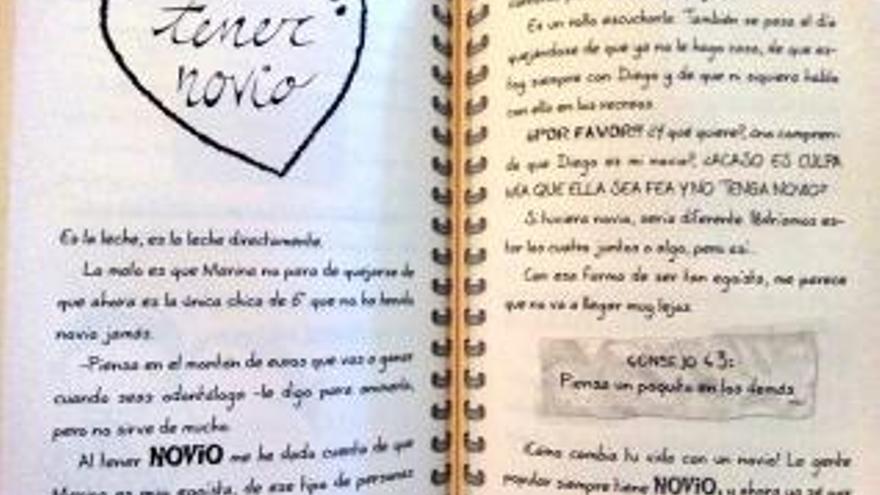 tener
novio
Es la leche, es la leche directamente.
Lo malo es que Marina no para de quejarse de
que ahora es la única chica de 6º que no ha tenido
novio jamás.
-Piensa en el montón de euros que vas a ganar
cuando seas odontóloga -le digo para animarla,
pero no sirve de mucho.
Al tener NOViO me he dado cuenta de que
Marina es muy egoísta, de ese tipo de personas
Es un rollo escucharla. También se pasa el día
quejándose de que ya no le hago caso, de que es-
toy siempre con Diego y de que ni siquiera hablo
con ella en los recreos.
¡¡POR FAVOR!! ¿Y qué quiere?, ¿no compren-
de que Diego es mi novio?, ¿ACASO ES CULPA
MÍA QUE ELLA SEA FEA Y NO TENGA NOVIO?
Si tuviera novio, sería diferente. Podríamos es-
tar los cuatro juntos o algo, pero así...
Con esa forma de ser tan egoísta, me parece
que no va a llegar muy lejos.
CONSEJO 43:
Piensa un poquito en los demás
¡Cómo cambia tu vida con un novio! La gente
popular siempre tiene NOViO, y ahora yo sé por